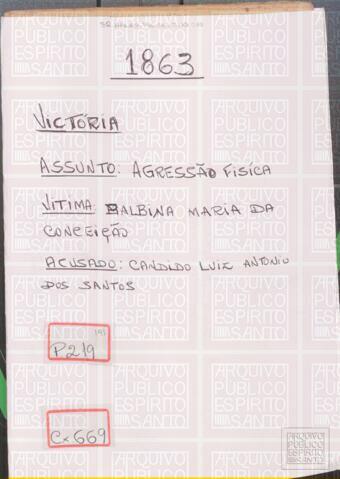 1863
VICTÓRIA
ASSUNTO: AGRESSÃO FÍSICA
VITIMA: BALBINA MARIA DA
CONCEIÇÃO
ACUSADO: CANDIDO LUIZ ANTONIO
DOS SANTOS
P219
Cx669
ARQUIVO
PÚBLICO
ESPÍRITO
SANTO